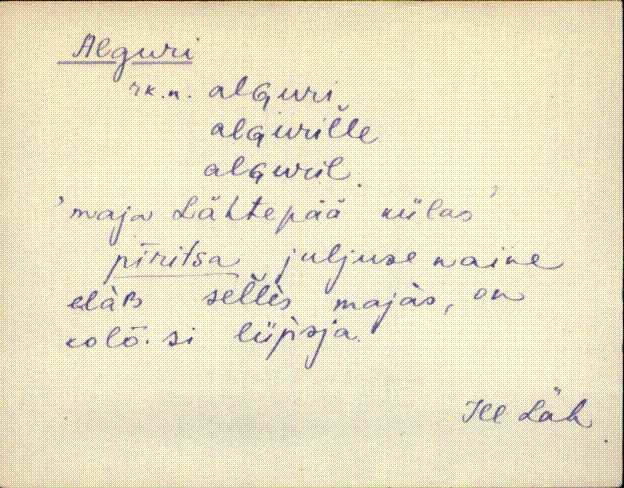 Alguri
rk.n. alguri
algurille
alguril
'maja Lähtepää külas'
pīritsa juljuse naine
elàB sellès majàs, on
kolō.si lüpsja.
Ill Läh.